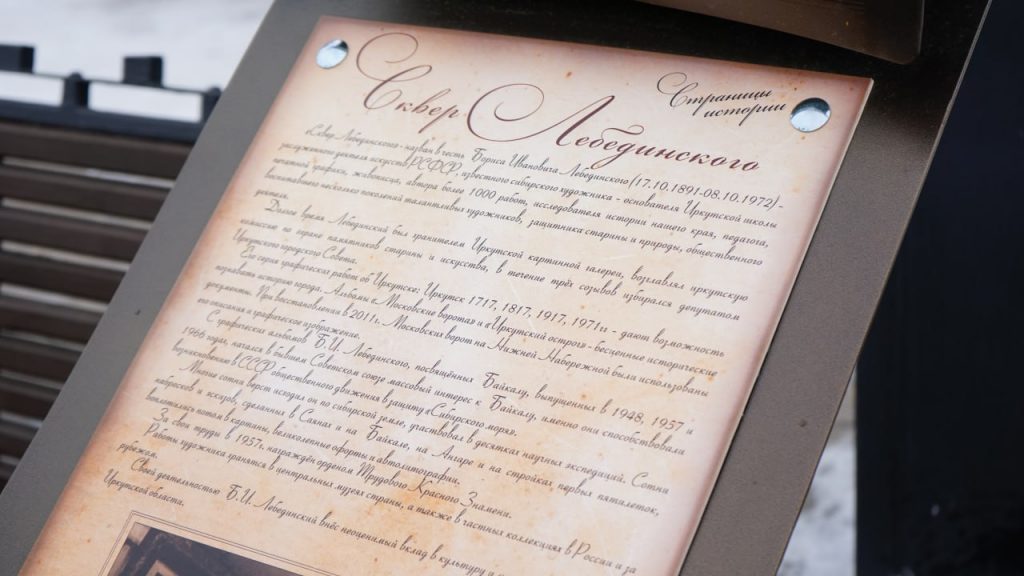 Страницы
истории
Сквер Лебединского
«Сквер Лебединского» - назван в честь Бориса Ивановича Лебединского (17.10.1891-08.10.1972) -
заслуженного деятеля искусств РСФСР, известного сибирского художника - основателя Иркутской школы
печатной графики, живописца, автора более 1000 работ, исследователя истории нашего края, педагога,
воспитавшего несколько поколений талантливых художников, защитника старины и природы, общественного
деятеля.
Долгое время Лебединский был хранителем Иркутской картинной галереи, возглавлял иркутскую
комиссию по охране памятников старины и искусства, в течение трёх созывов избирался депутатом
Иркутского городского Совета.
Его серия графических работ об Иркутске: Иркутск 1717, 1817, 1917, 1971гг - дают возможность
познавать историю города. Альбомы «Московские ворота» и «Иркутский острог» - бесценные исторические
документы. При восстановлении в 2011г. Московских ворот на Нижней Набережной были использованы
его описания и графическое изображение.
С графических альбомов Б.И. Лебединского, посвящённых Байкалу, выпущенных в 1948, 1957 и
1966 годах, начался в бывшем Советском союзе массовый интерес к Байкалу, именно они способствовали
возникновению в СССР общественного движения в защиту «Сибирского моря».
Многие сотни верст исходил он по сибирской земле, участвовал в десятках научных экспедиций. Сотни
набросков и эскизов, сделанных в Саянах и на Байкале, на Ангаре и на стройках первых пятилеток,
воплотились потом в картины, великолепные офорты и автолитографии.
За свои труды в 1957г. награждён орденом Трудового Красного Знамени.
Работы художника хранятся в центральных музеях страны, а также в частных коллекциях в России и за
рубежом.
Своей деятельностью Б.И. Лебединский внёс неоценимый вклад в культуру и
Иркутской области.